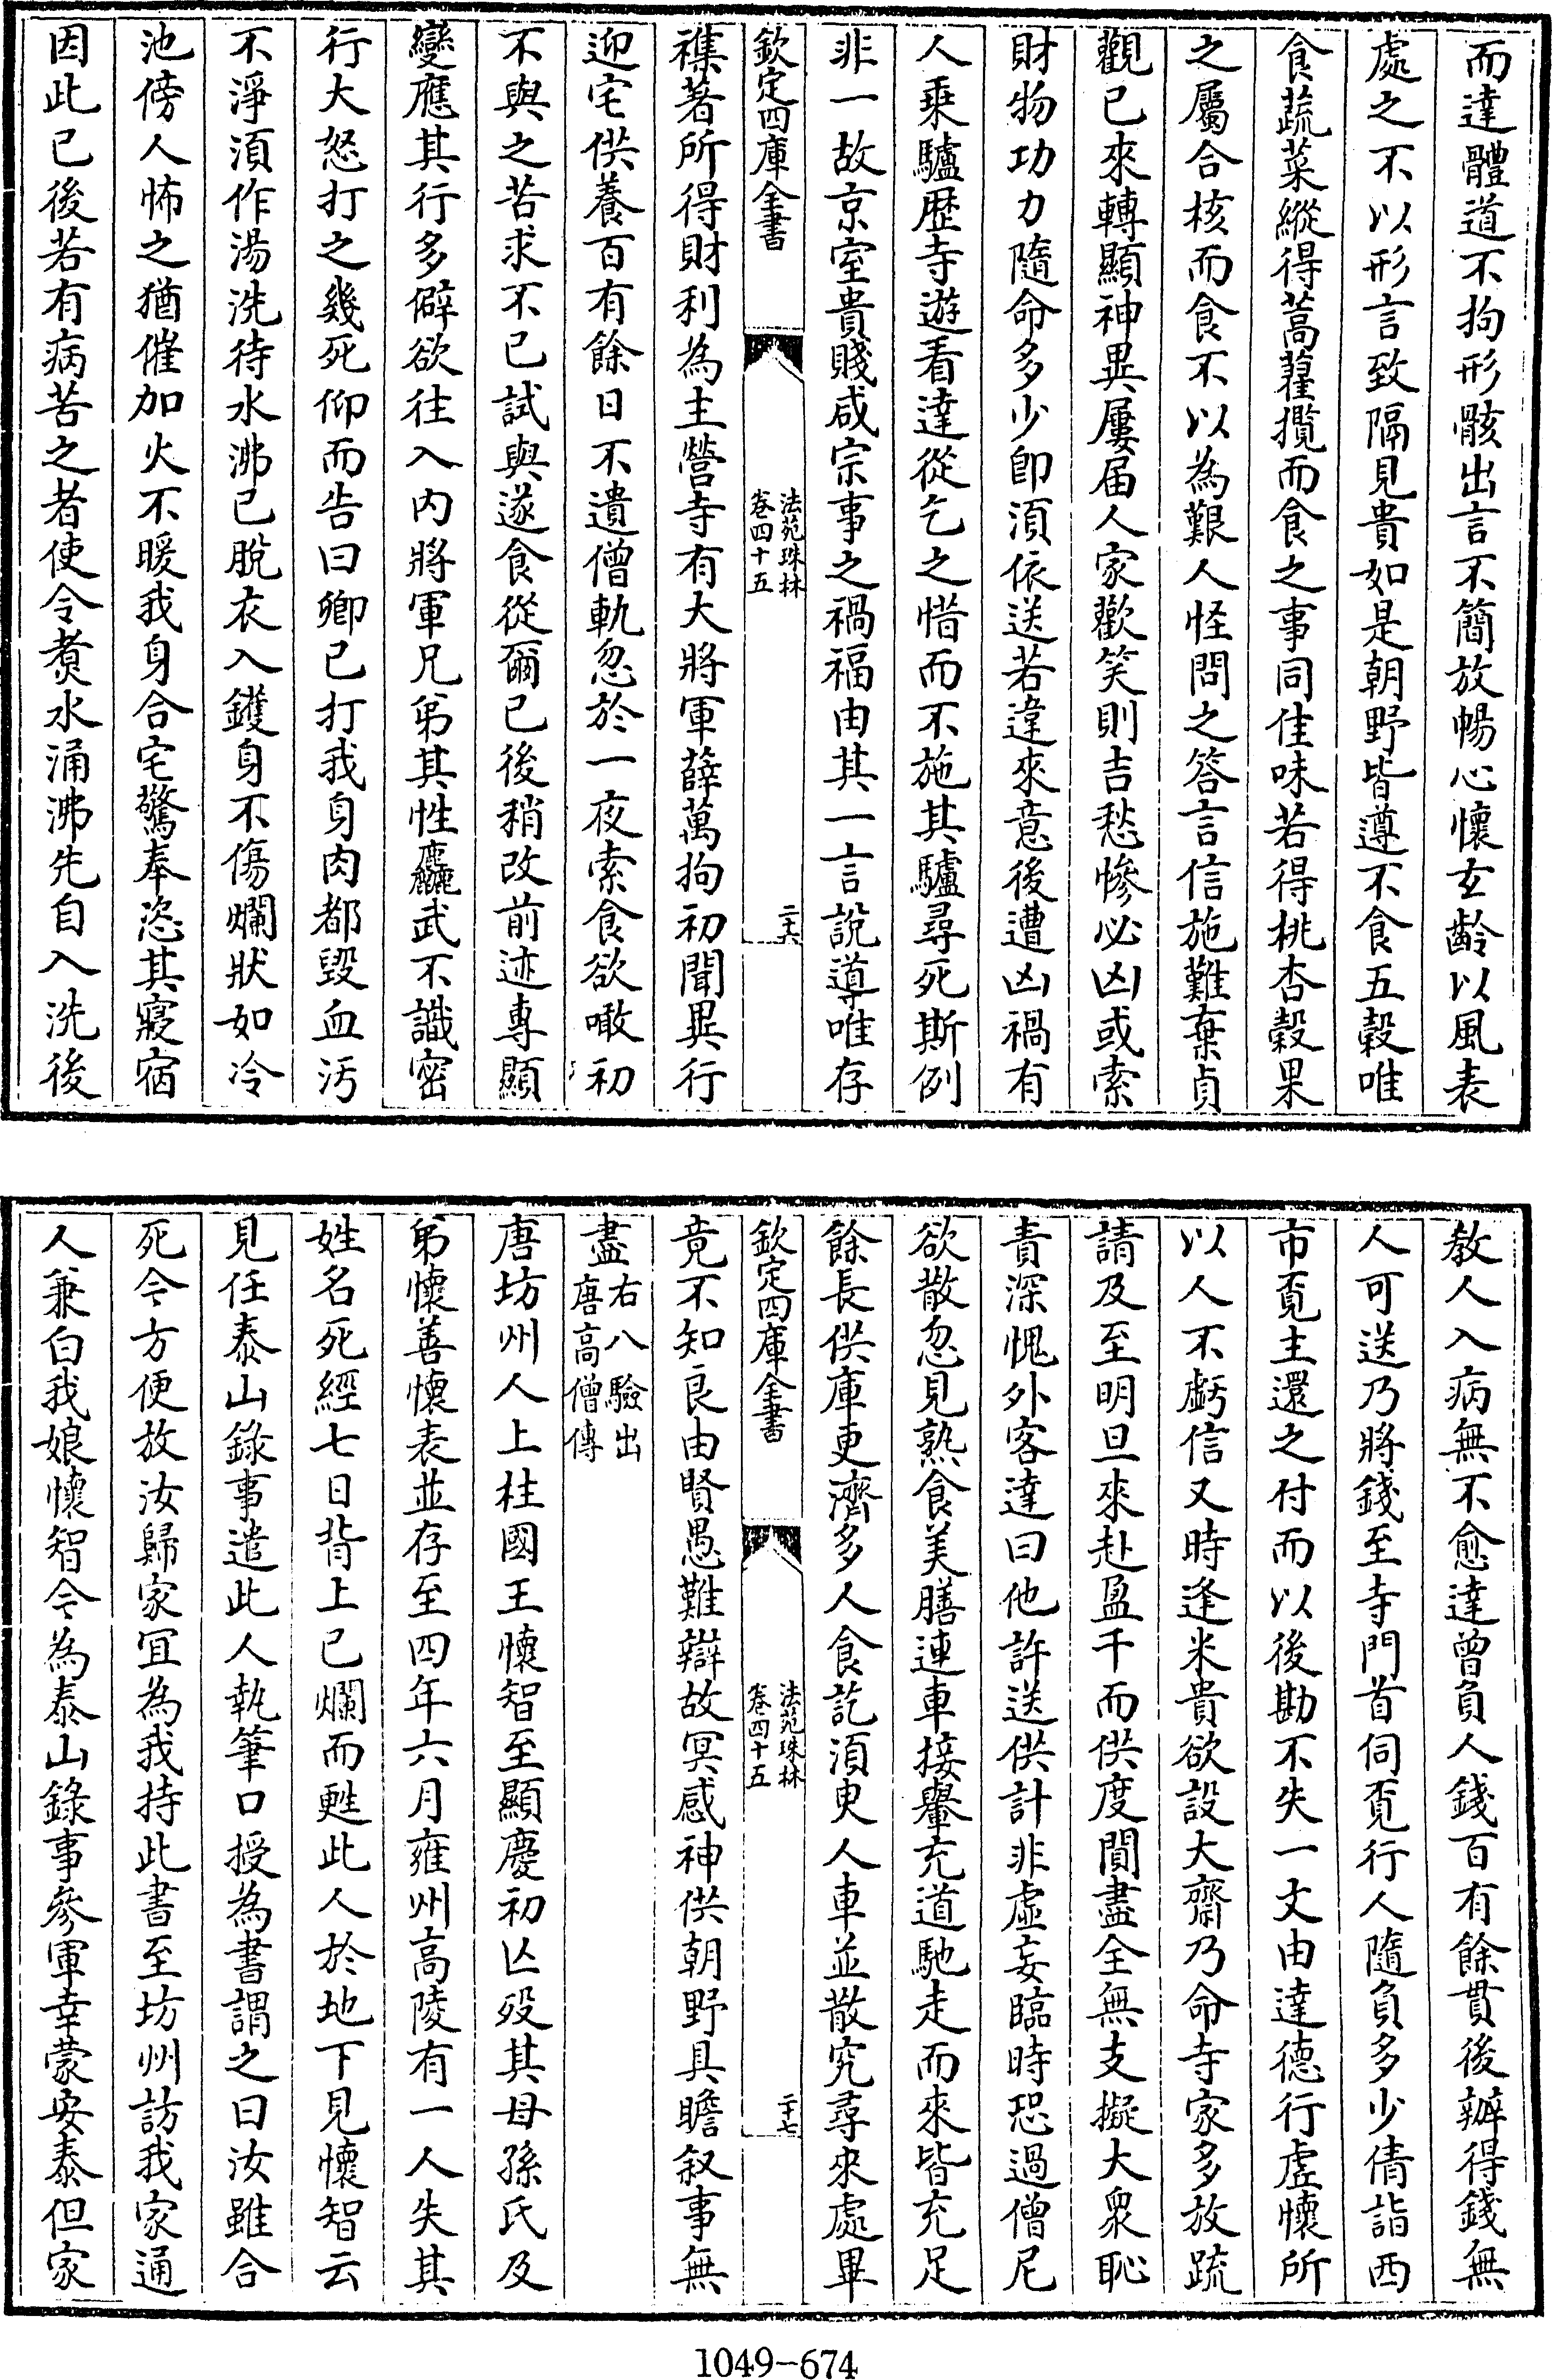 而達體道不拘形骸出言不簡放暢心懷玄齡以風表
處之不以形言致隔見貴如是朝野皆遵不食五穀唯
食蔬菜縱得蒿藋攬而食之事同佳味若得桃杏穀果
之屬合核而食不以為艱人怪問之答言信施難棄貞
觀已來轉顯神異屢届人家歡笑則吉愁慘必凶或索
財物功力隨命多少即須依送若違來意後遭凶禍有
人乘驢歷寺遊看達從乞之惜而不施其驢尋死斯例
非一故京室貴賤咸宗事之禍福由其一言說導唯存
欽定四庫全書
法苑珠林
卷四十五
二十六
襍著所得財利為主營寺有大將軍薛萬拘初聞異行
迎宅供養百有餘日不遺僧軌忽於一夜索食欲噉初
不與之苦求不已試與遂食從爾已後稍改前迹專顯
變應其行多僻欲往入内將軍兄弟其性麤武不識密
行大怒打之幾死仰而告曰卿已打我身肉都毀血汚
不淨須作湯洗待水沸已脫衣入鑊身不傷爛狀如冷
池傍人怖之猶催加火不暖我身合宅驚奉恣其寢宿
因此已後若有病苦之者使令煮水涌沸先自入洗後
教人入病無不愈達曾負人錢百有餘貫後辦得錢無
人可送乃將錢至寺門首伺覔行人隨負多少倩詣西
市覔主還之付而以後勘不失一文由達德行虛懷所
以人不虧信又時逢米貴欲設大齋乃命寺家多放疏
請及至明旦來赴盈千而供度閴盡全無支擬大衆恥
責深愧外客達曰他許送供計非虛妄臨時恐過僧尼
欲散忽見熟食美膳連車接轝充道馳走而來皆充足
餘長供庫更濟多人食訖須臾人車並散究尋來處畢
欽定四庫全書
法苑珠林
卷四十五
二十七
竟不知良由賢愚難辯故冥感神供朝野具瞻叙事無
盡右八驗出
唐高僧傳
唐坊州人上柱國王懷智至顯慶初亾歿其母孫氏及
弟懷善懷表並存至四年六月雍州高陵有一人失其
姓名死經七日背上已爛而甦此人於地下見懷智云
見任泰山錄事遣此人執筆口授為書謂之曰汝雖合
死今方便放汝歸家冝為我持此書至坊州訪我家通
人兼白我娘懷智今為泰山錄事參軍幸蒙安泰但家
1049-674